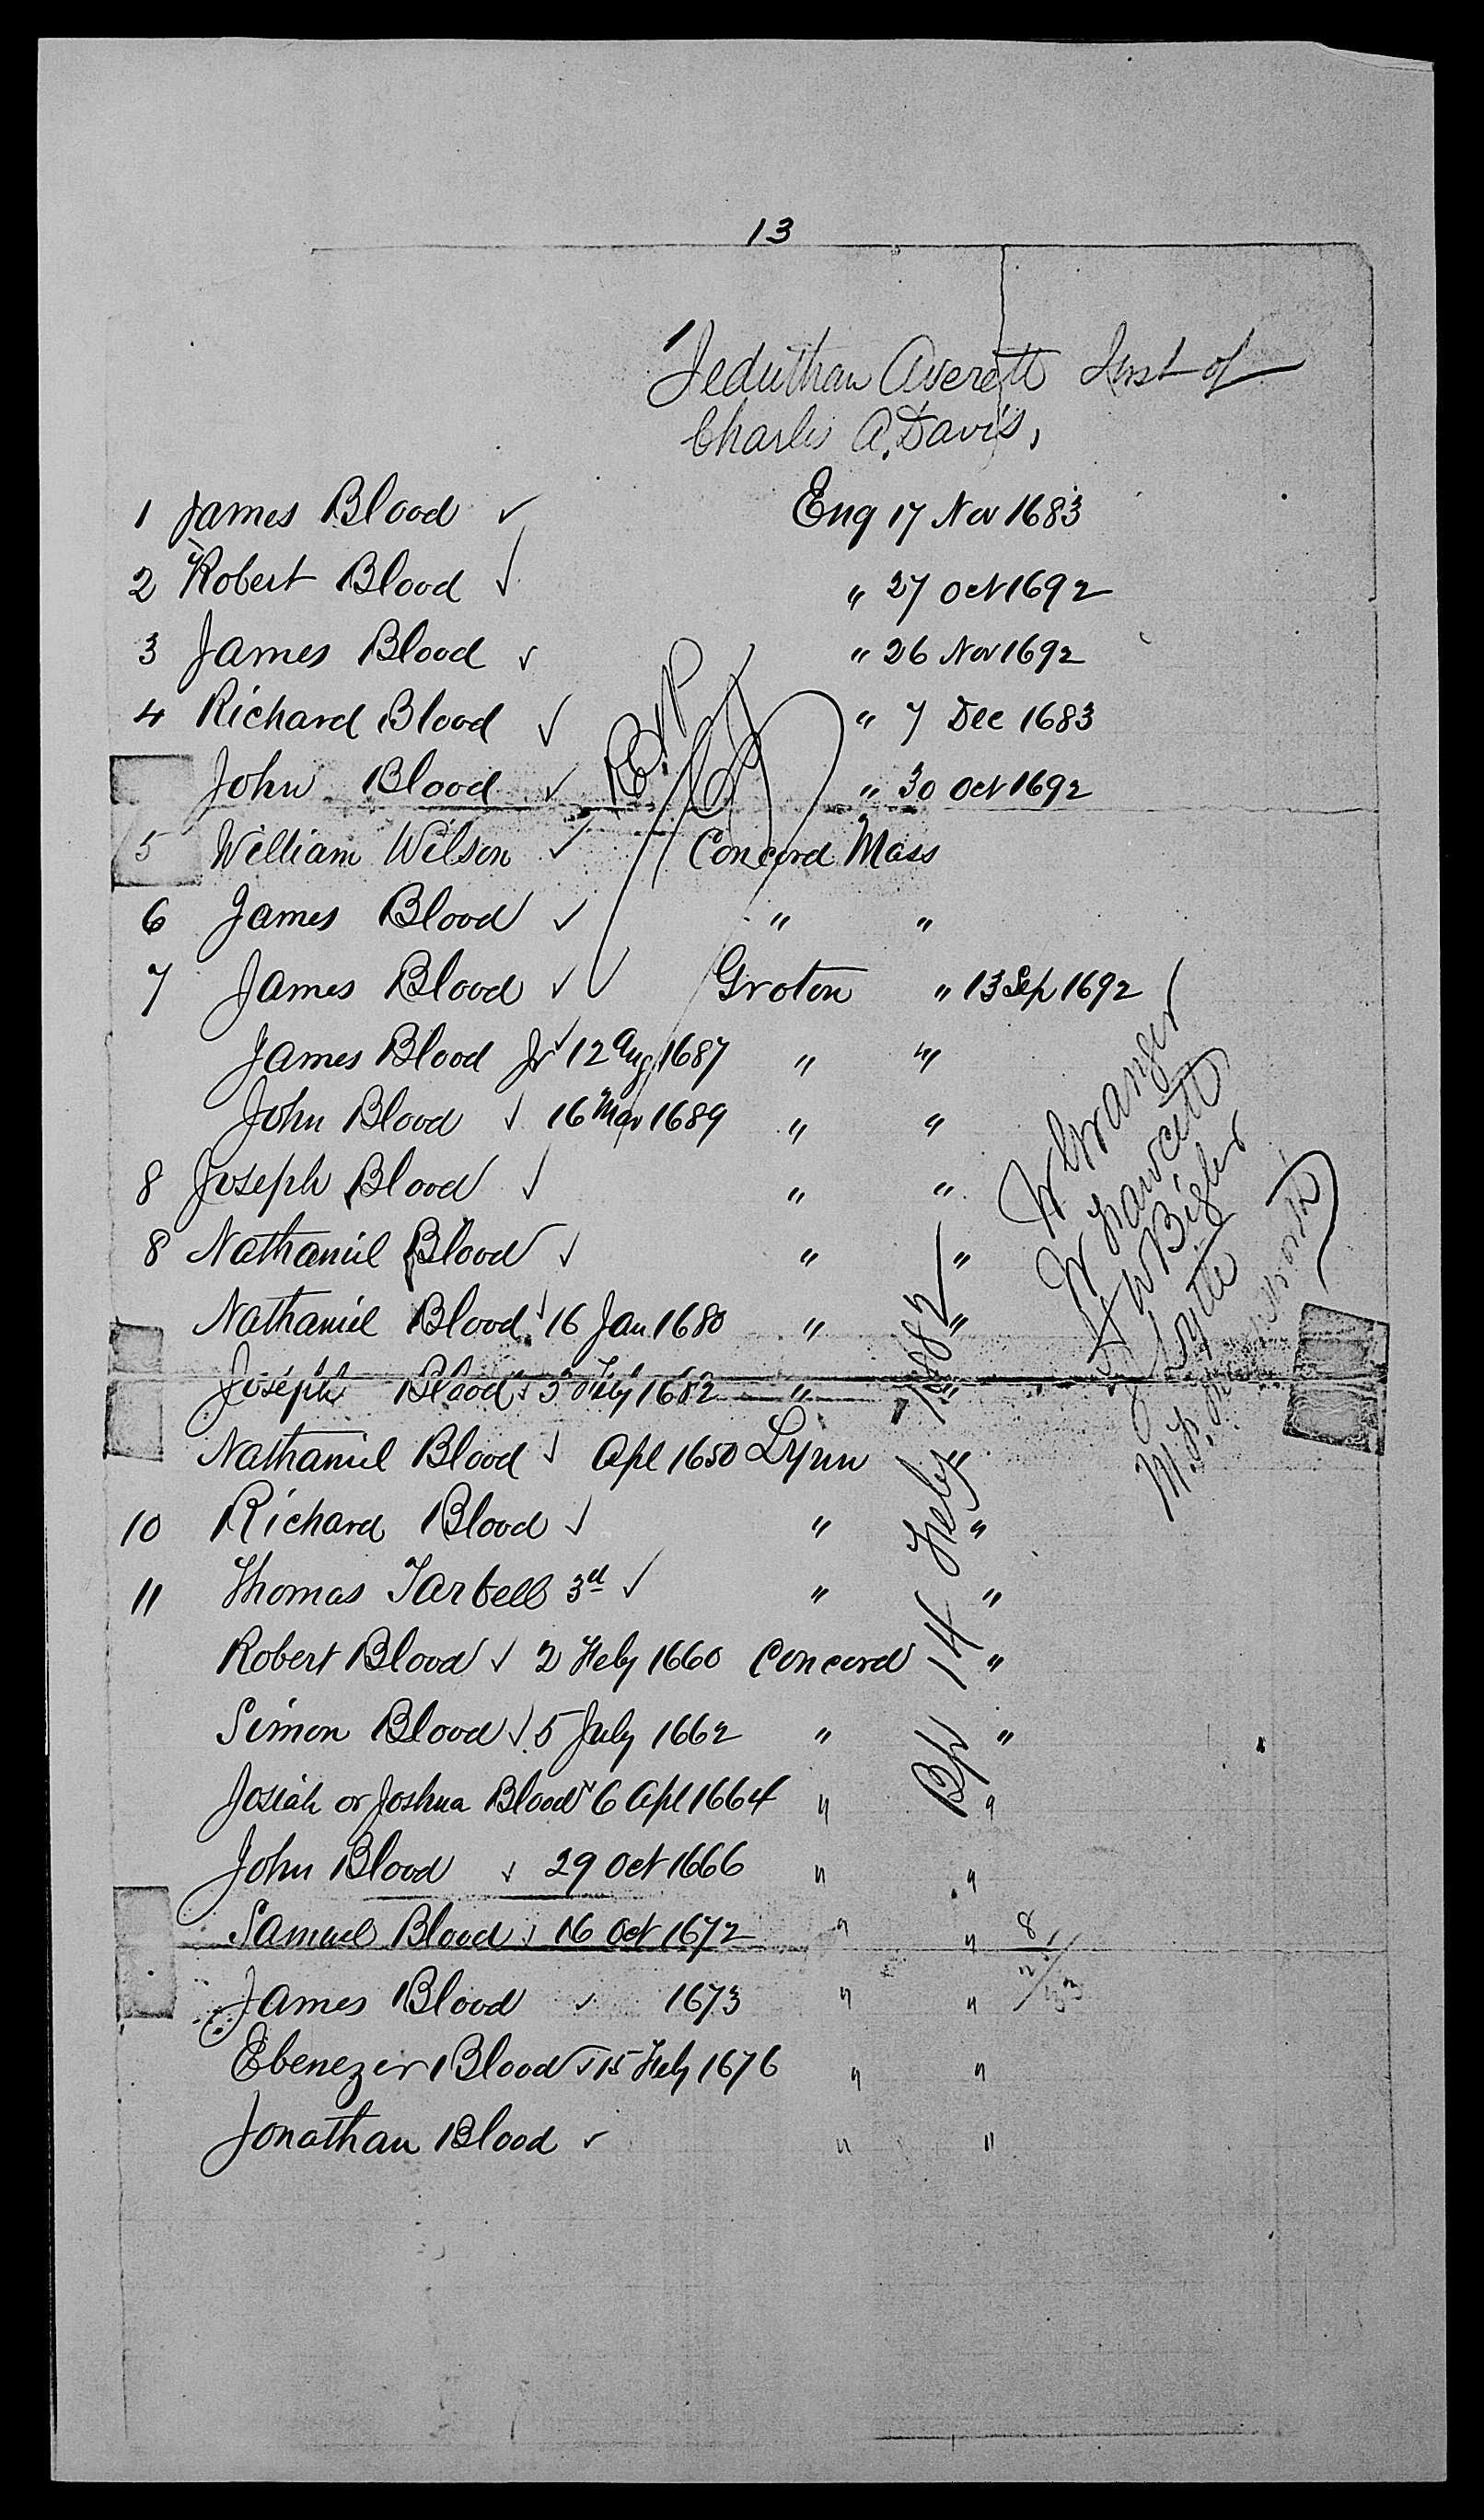 13
Jeduthan Averett Inst of
Charles A. Davis,
1 James Blood ✓ Eng 17 Nov 1683
2 Robert Blood ✓ " 27 Oct 1692
3 James Blood ✓ " 26 Nov 1692
4 Richard Blood ✓ " 7 Dec 1683
John Blood ✓ " 30 Oct 1692
5 William Wilson ✓ Concord Mass
6 James Blood ✓ " "
7 James Blood ✓ Groton " 13 Sep 1692
James Blood Jr ✓ 12 Aug 1687 " "
John Blood ✓ 16 Mar 1689 " "
8 Joseph Blood ✓ " "
8 Nathaniel Blood ✓ " "
Nathaniel Blood ✓ 16 Jan 1680 " "
Joseph Blood ✓ 3 Feby 1682 " "
Nathaniel Blood ✓ Apl 1650 Lynn "
10 Richard Blood ✓ " "
11 Thomas Tarbell 3d ✓ " "
Robert Blood ✓ 2 Feby 1660 Concord "
Simon Blood ✓ 5 July 1662 " "
Josiah or Joshua Blood ✓ 6 Apl 1664 " "
John Blood ✓ 29 Oct 1666 " "
Samuel Blood ✓ 16 Oct 1672 " " 8
James Blood ✓ 1673 " "
Ebenezer Blood ✓ 15 Feby 1676 " "
Jonathan Blood ✓ " "
Bp 14 Feby 1882
W Granger
W Fawcett
W Bigler
Lytle